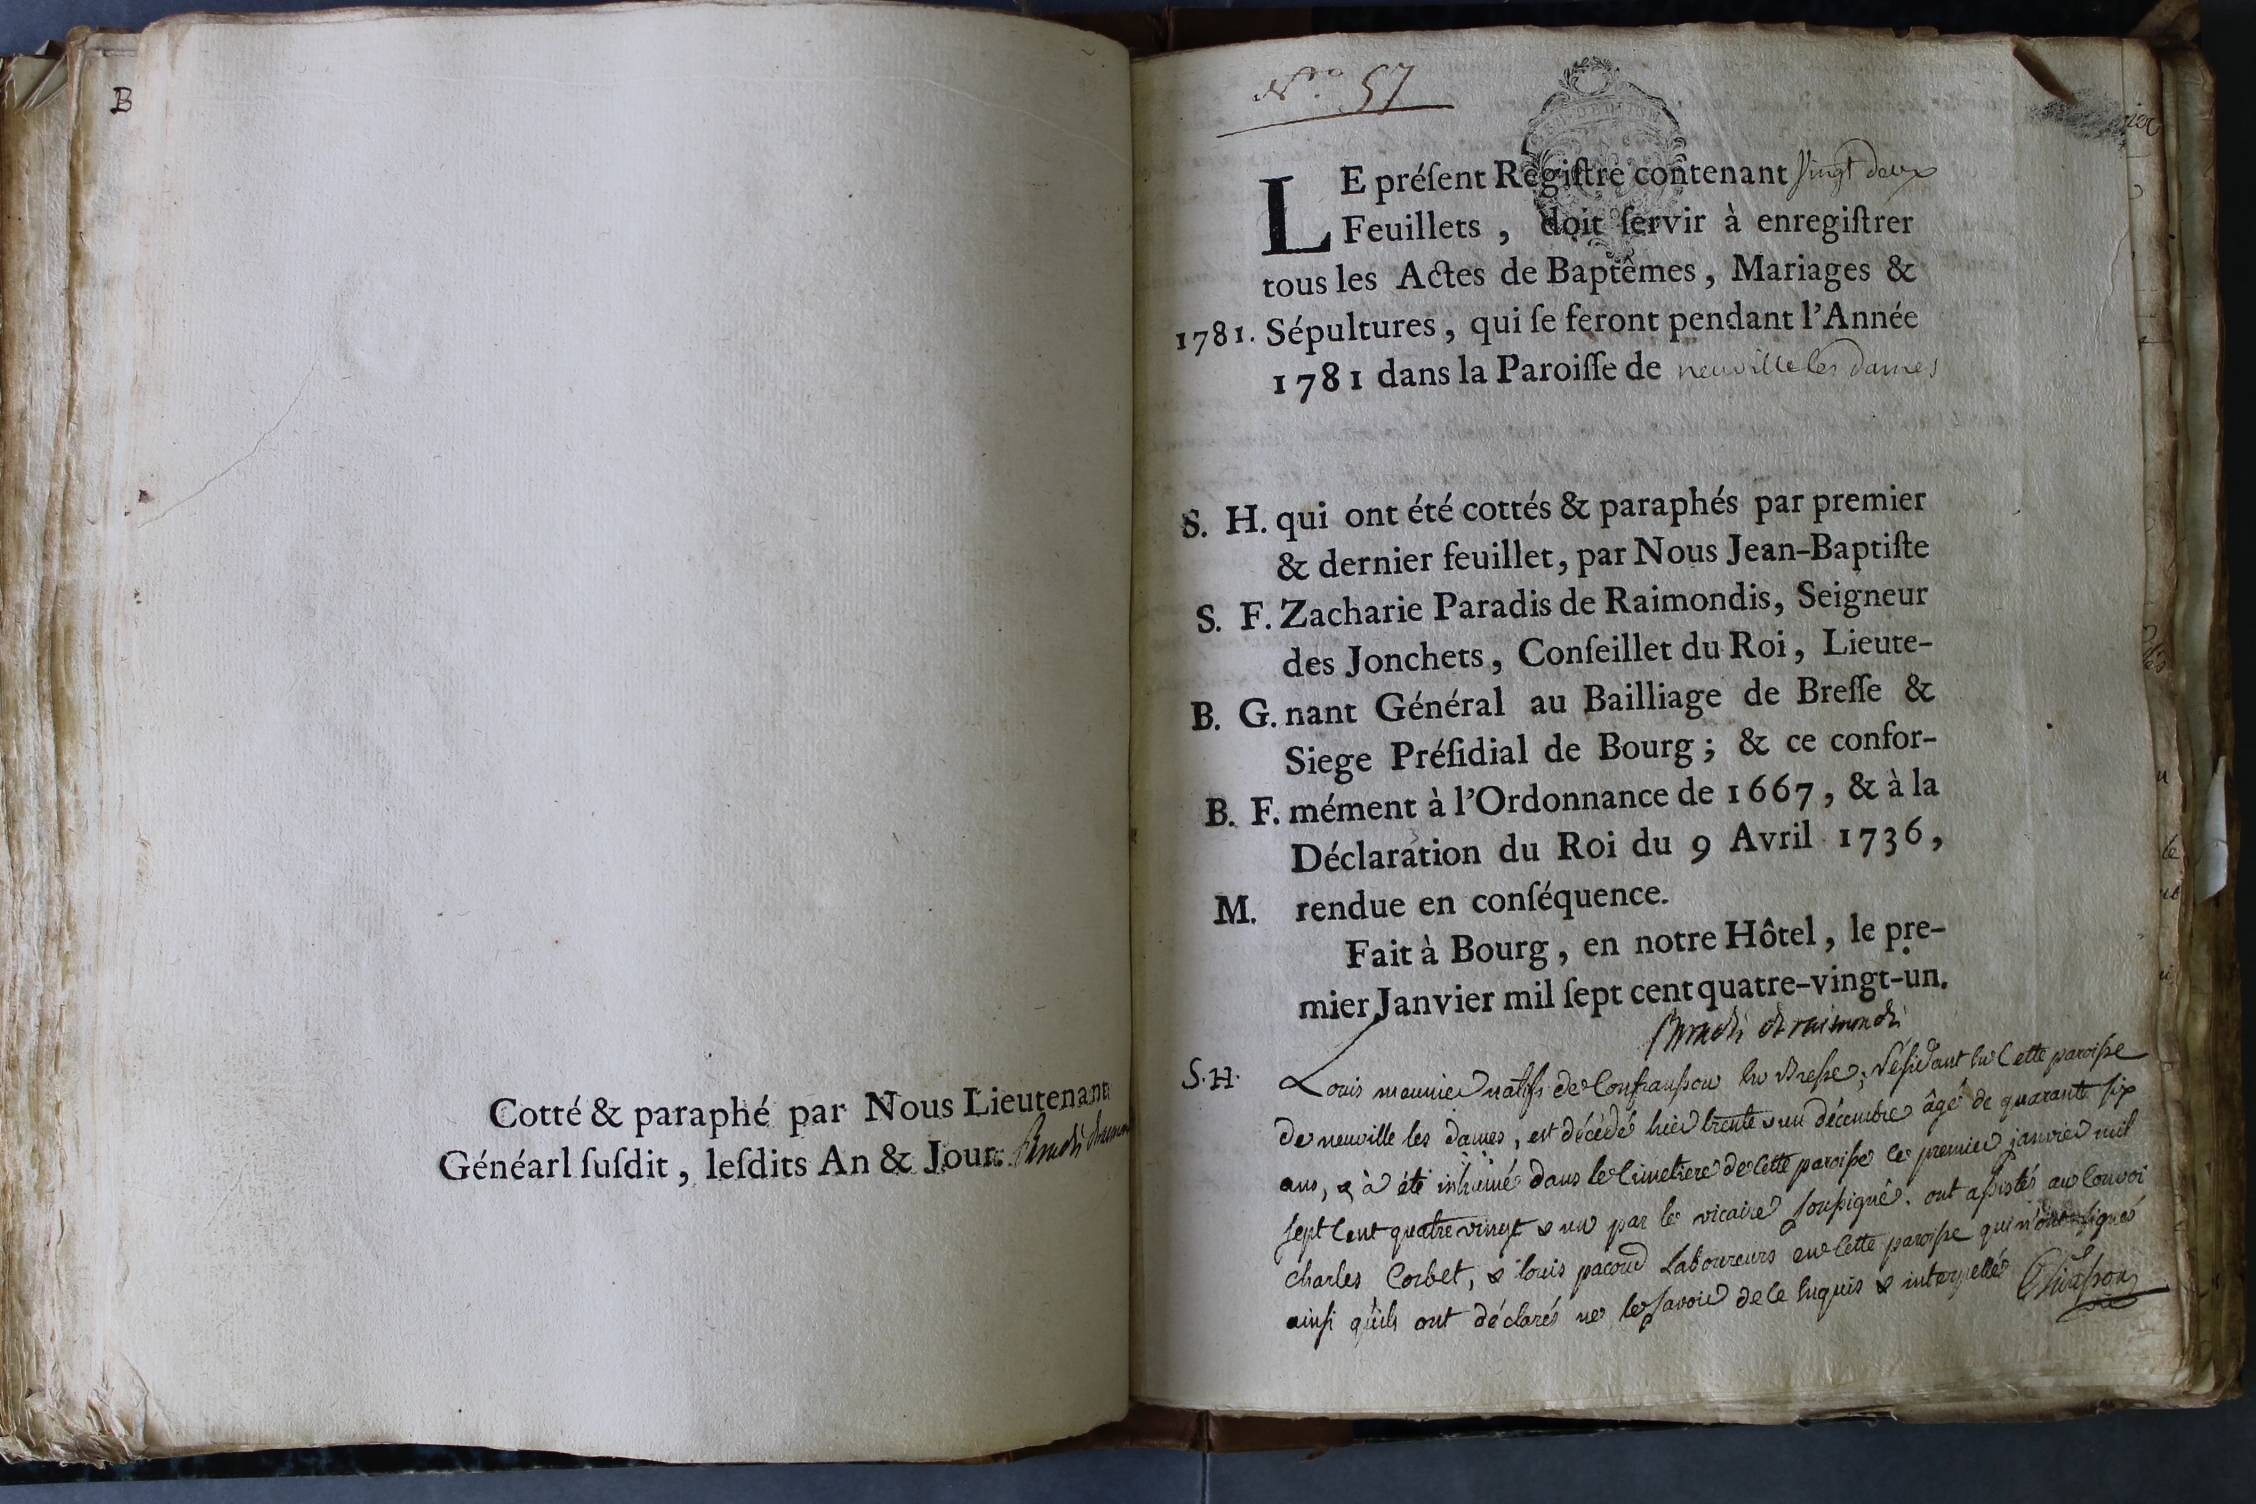 B
Cotté & paraphé par Nous Lieutenant
Généarl ſuſdit, leſdits An & Jour.
N.o 57
LE préſent Regiſtre contenant vingt deux
Feuillets, doit ſervir à enregiſtrer
tous les Actes de Baptêmes, Mariages &
1781. Sépultures, qui ſe feront pendant l'Année
1781 dans la Paroiſſe de neuville les dames
S. H. qui ont été cottés & paraphés par premier
& dernier feuillet, par Nous Jean-Baptiſte
S. F. Zacharie Paradis de Raimondis, Seigneur
des Jonchets, Conſeillet du Roi, Lieute-
B. G. nant Général au Bailliage de Breſſe &
Siege Préſidial de Bourg; & ce confor-
B. F. mément à l'Ordonnance de 1667, & à la
Déclaration du Roi du 9 Avril 1736,
M. rendue en conſéquence.
Fait à Bourg, en notre Hôtel, le pre-
mier Janvier mil ſept cent quatre-vingt-un.
Paradis de raimondis
S.H. Louis meunier natifs de Confranſson en Breſse, réſidant en Cette paroiſse
de neuville les dames, est décédé hier trente & un décembre âgé de quarante ſix
ans, & à été inhumé dans le Cimetiere de Cette paroiſse le premier janvier mil
ſept Cent quatre vingt & un par le vicaire ſouſsigné. ont aſsistés au Convoi
Charles Corbet, & louis pacoud Laboureurs en Cette paroiſse qui n'ont ſignés
ainſi qu'ils ont déclarés ne le ſavoir de Ce Enquis & interpellés